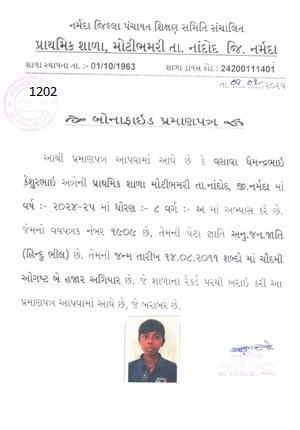 નર્મદા જિલ્લા પંચાયત શિક્ષણ સમિતિ સંચાલિત
પ્રાથમિક શાળા, મોટીભમરી તા. નાંદોદ જિ. નર્મદા
શાળા સ્થાપના તા. :- 01/10/1963 શાળા ડાયસ કોડ : 24200111401
તા. ૨૦૨૫
1202
બોનાફાઇડ પ્રમાણપત્ર
આથી પ્રમાણપત્ર આપવામાં આવે છે કે વસાવા ધૈમન્દ્રભાઇ
કેશુરભાઇ અત્રેની પ્રાથમિક શાળા મોટીભમરી તા.નાંદોદ, જી.નર્મદા માં
વર્ષ :- ૨૦૨૪-૨૫ માં ધોરણ :- ૮ વર્ગ :- અ માં અભ્યાસ કરે છે.
જેમનો વયપત્રક નંબર ૧૯૦૯ છે, તેમની પેટા જ્ઞાતિ અનુ.જન.જાતિ
(હિન્દુ ભીલ) છે. તેમની જન્મ તારીખ ૧૪.૦૮.૨૦૧૧ શબ્દો માં ચૌદમી
ઓગષ્ટ બે હજાર અગિયાર છે. જે શાળાના રેકર્ડ પરથી ખરાઇ કરી આ
પ્રમાણપત્ર આપવામાં આવે છે, જે બરાબર છે.